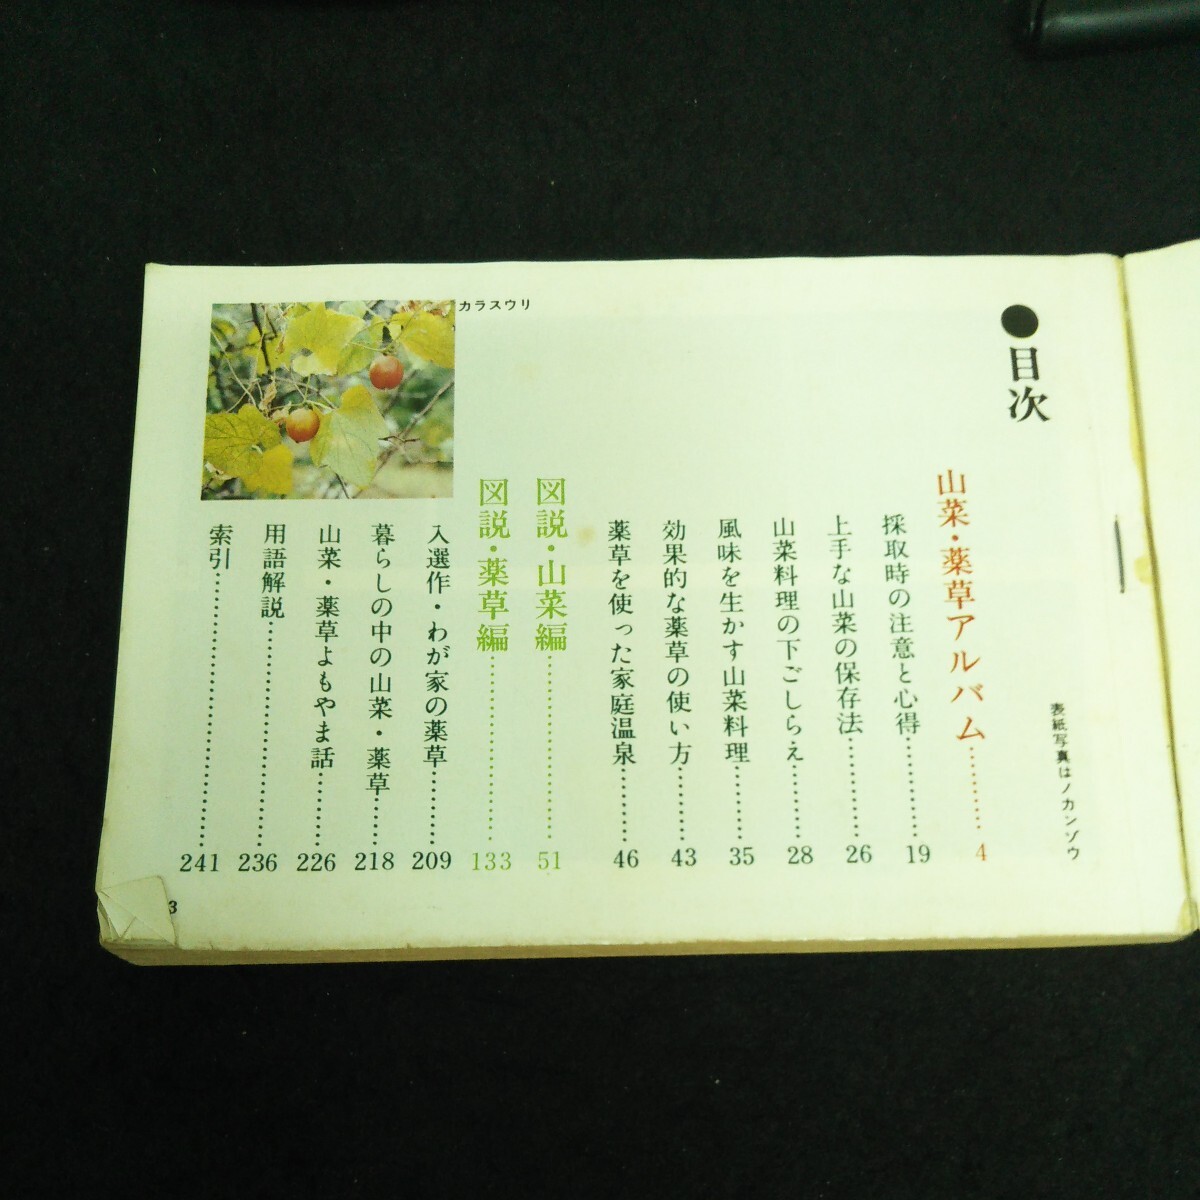 ●目次
表紙写真はノカンゾウ
山菜・薬草アルバム………4
採取時の注意と心得…………19
上手な山菜の保存法…………26
山菜料理の下ごしらえ………28
風味を生かす山菜料理………35
効果的な薬草の使い方………43
薬草を使った家庭温泉………46
図説・山菜編………………51
図説・薬草編………………133
入選作・わが家の薬草………209
暮らしの中の山菜・薬草……218
山菜・薬草よもやま話………226
用語解説……………………236
索引…………………………241
カラスウリ
3